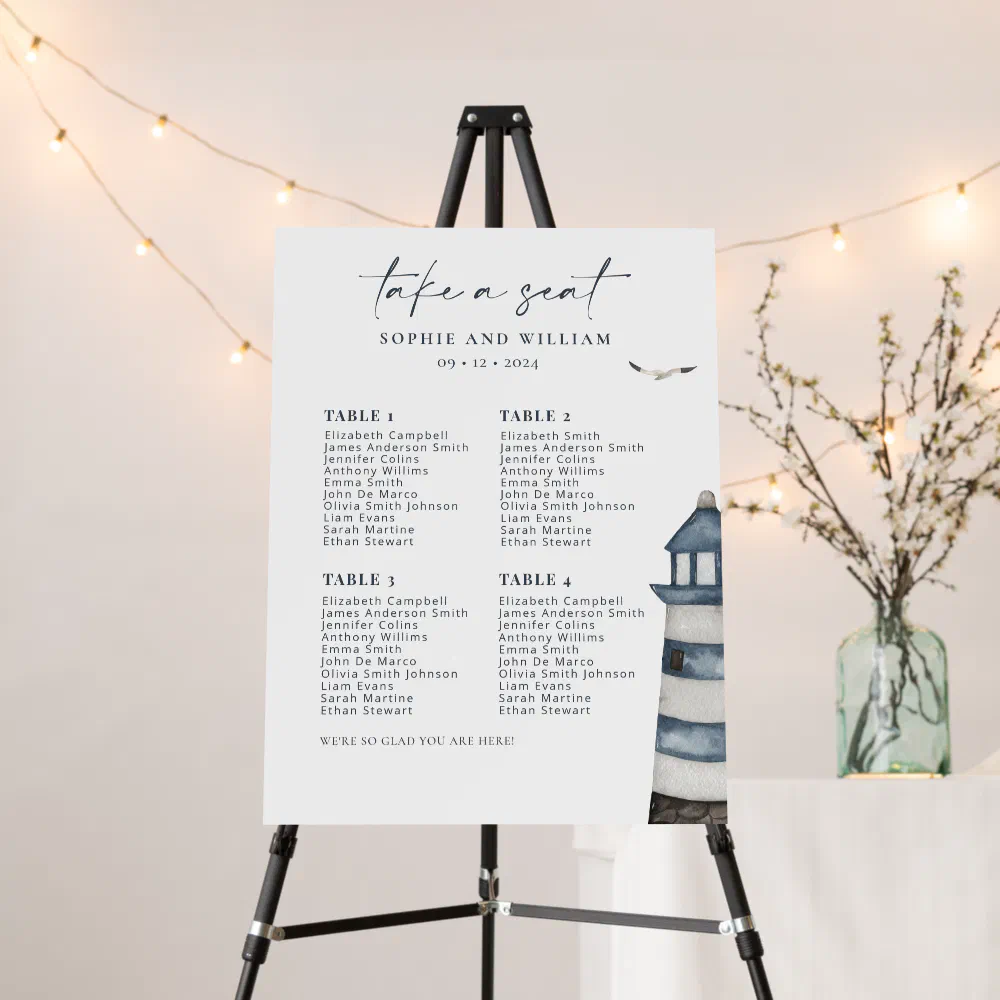 take a seat
SOPHIE AND WILLIAM
09 • 12 • 2024
TABLE 1
Elizabeth Campbell
James Anderson Smith
Jennifer Colins
Anthony Willims
Emma Smith
John De Marco
Olivia Smith Johnson
Liam Evans
Sarah Martine
Ethan Stewart
TABLE 2
Elizabeth Smith
James Anderson Smith
Jennifer Colins
Anthony Willims
Emma Smith
John De Marco
Olivia Smith Johnson
Liam Evans
Sarah Martine
Ethan Stewart
TABLE 3
Elizabeth Campbell
James Anderson Smith
Jennifer Colins
Anthony Willims
Emma Smith
John De Marco
Olivia Smith Johnson
Liam Evans
Sarah Martine
Ethan Stewart
TABLE 4
Elizabeth Campbell
James Anderson Smith
Jennifer Colins
Anthony Willims
Emma Smith
John De Marco
Olivia Smith Johnson
Liam Evans
Sarah Martine
Ethan Stewart
WE'RE SO GLAD YOU ARE HERE!